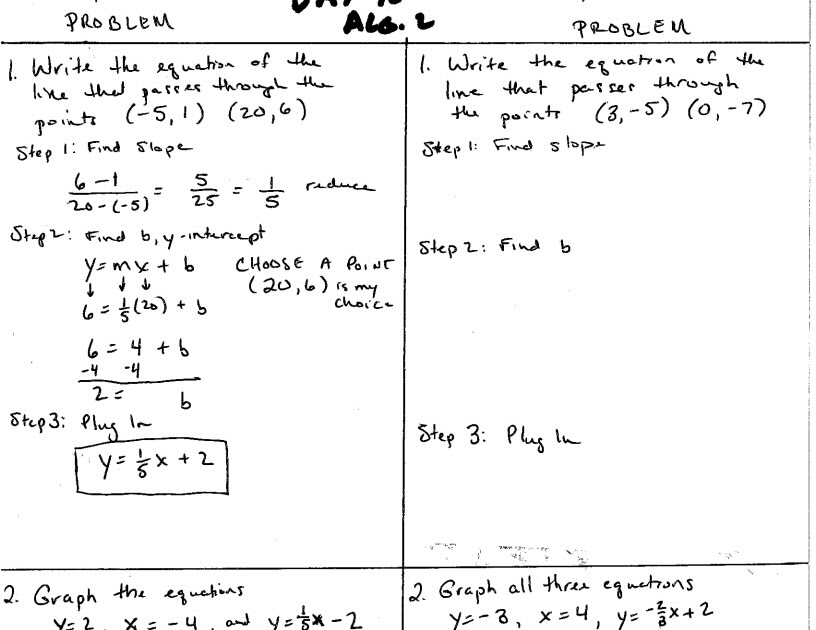 ALG. 2
PROBLEM
1. Write the equation of the
line that passes through the
points (-5, 1) (20, 6)
Step 1: Find Slope
6-1/20-(-5) = 5/25 = 1/5 reduce
Step 2: Find b, y-intercept
y = mx + b CHOOSE A POINT
(20, 6) is my
choice
6 = 1/5(20) + b
6 = 4 + b
-4 -4
2 = b
Step 3: Plug In
y = 1/5x + 2
2. Graph the equations
y = 2, x = -4, and y = 1/5x - 2
PROBLEM
1. Write the equation of the
line that passes through
the points (3, -5) (0, -7)
Step 1: Find slope
Step 2: Find b
Step 3: Plug In
2. Graph all three equations
y = -3, x = 4, y = -2/3x + 2